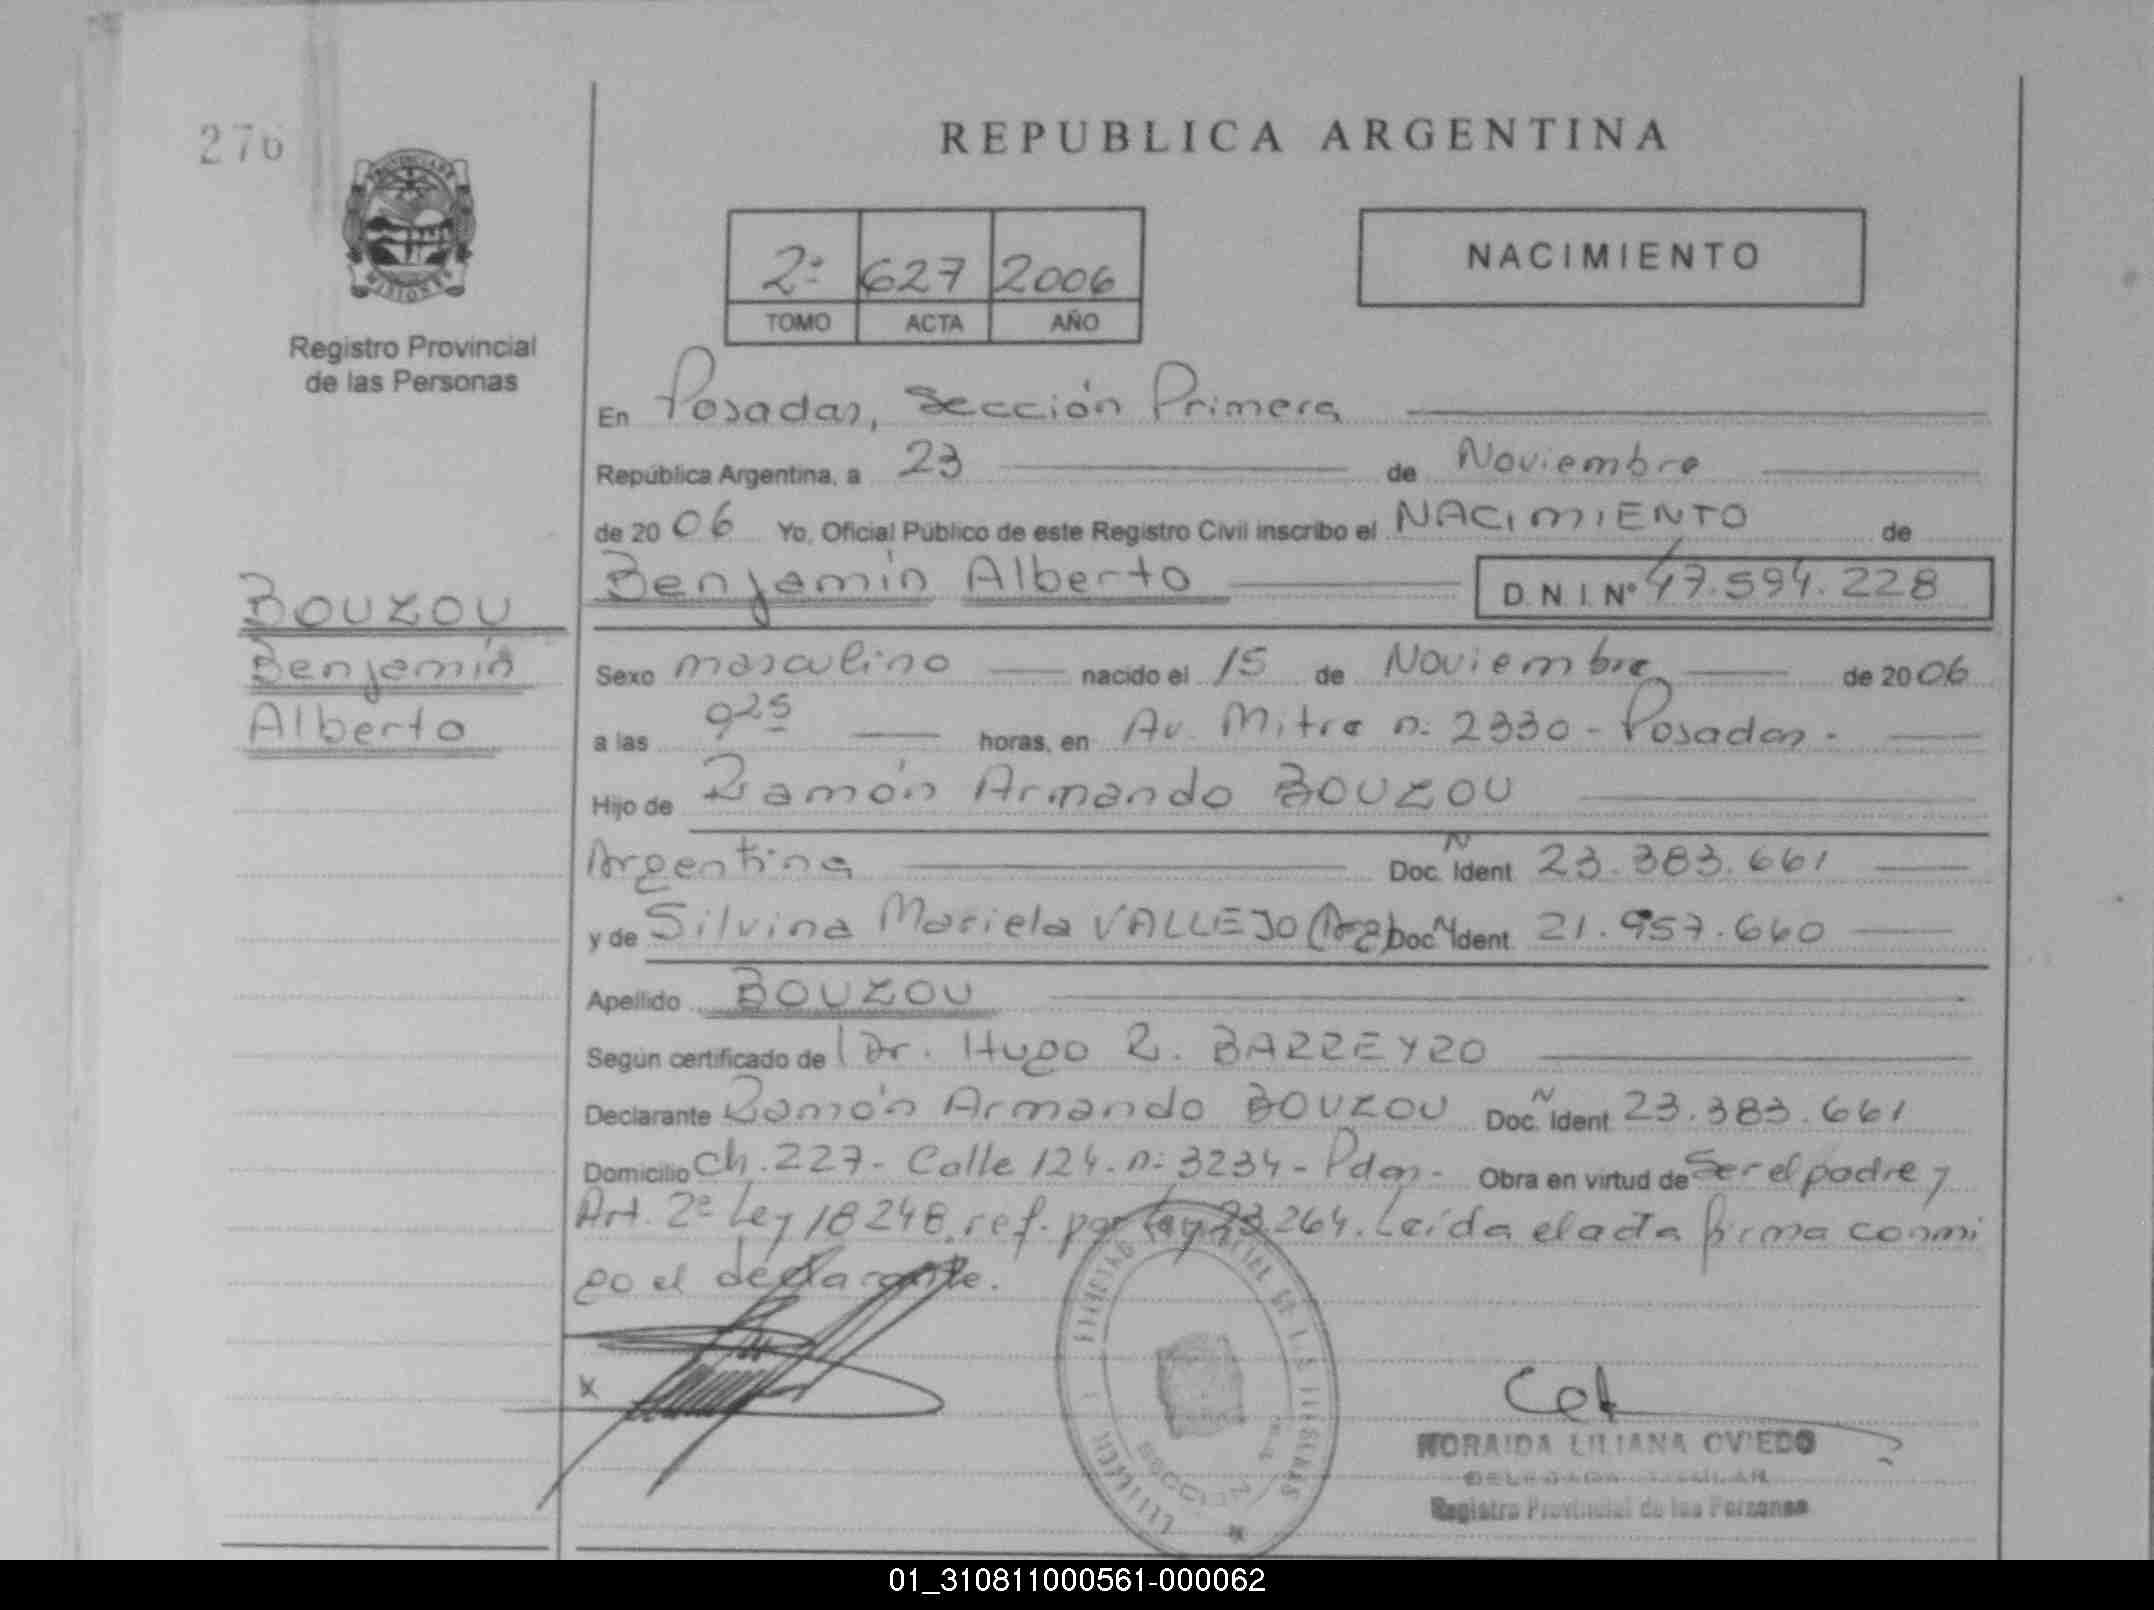 276
REPUBLICA ARGENTINA
PROVINCIA DE
MISIONES
Registro Provincial
de las Personas
2º 627 2006
TOMO ACTA AÑO
NACIMIENTO
En Posadas, Sección Primera
República Argentina, a 23 de Noviembre
de 2006 Yo, Oficial Público de este Registro Civil inscribo el NACIMIENTO de
Benjamín Alberto D.N.I. Nº 47.594.228
BOUZOU
Benjamín
Alberto
Sexo masculino nacido el 15 de Noviembre de 2006
a las 925 horas, en Av. Mitre n: 2330 - Posadas -
Hijo de Ramón Armando BOUZOU
Argentina Doc. N Ident 23.383.661
y de Silvina Mariela VALLEJO (Arg) Doc. N Ident. 21.957.660
Apellido BOUZOU
Según certificado de Dr. Hugo R. BARREYRO
Declarante Ramón Armando BOUZOU Doc. N Ident 23.383.661
Domicilio Ch. 227 - Calle 124 - n: 3234 - Pdas - Obra en virtud de Ser el padre y
Art. 2º Ley 18248, ref. por Ley 23264. Leída el acta firma conmi
go el declarante.
x
SECCION
NORAIDA LILIANA OVIEDO
DELEGADA TITULAR
Registro Provincial de las Personas
01_310811000561-000062